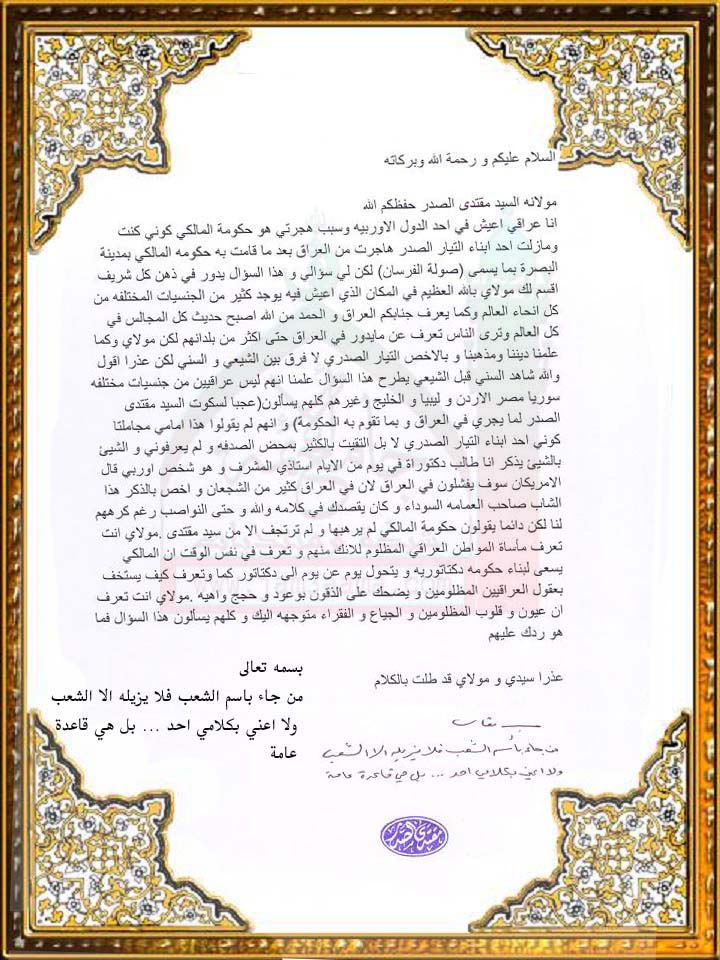 السلام عليكم و رحمة الله وبركاته
مولانه السيد مقتدى الصدر حفظكم الله
انا عراقي اعيش في احد الدول الاوربيه وسبب هجرتي هو حكومة المالكي كوني كنت
ومازلت احد ابناء التيار الصدر هاجرت من العراق بعد ما قامت به حكومه المالكي بمدينة
البصرة بما يسمى (صولة الفرسان) لكن لي سؤالي و هذا السؤال يدور في ذهن كل شريف
اقسم لك مولاي بالله العظيم في المكان الذي اعيش فيه يوجد كثير من الجنسيات المختلفه من
كل انحاء العالم وكما يعرف جنابكم العراق و الحمد من الله اصبح حديث كل المجالس في
كل العالم وترى الناس تعرف عن مايدور في العراق حتى اكثر من بلدانهم لكن مولاي وكما
علمنا ديننا ومذهبنا و بالاخص التيار الصدري لا فرق بين الشيعي و السني لكن عذرا اقول
والله شاهد السني قبل الشيعي يطرح هذا السؤال علمنا انهم ليس عراقيين من جنسيات مختلفه
سوريا مصر الاردن و ليبيا و الخليج وغيرهم كلهم يسألون(عجبا لسكوت السيد مقتدى
الصدر لما يجري في العراق و بما تقوم به الحكومة) و انهم لم يقولوا هذا امامي مجاملتا
كوني احد ابناء التيار الصدري لا بل التقيت بالكثير بمحض الصدفه و لم يعرفوني و الشيئ
بالشيئ يذكر انا طالب دكتوراة في يوم من الايام استاذي المشرف و هو شخص اوربي قال
الامريكان سوف يفشلون في العراق لان في العراق كثير من الشجعان و اخص بالذكر هذا
الشاب صاحب العمامه السوداء و كان يقصدك في كلامه والله و حتى النواصب رغم كرههم
لنا لكن دائما يقولون حكومة المالكي لم يرهبها و لم ترتجف الا من سيد مقتدى .مولاي انت
تعرف مأساة المواطن العراقي المظلوم للانك منهم و تعرف في نفس الوقت ان المالكي
يسعى لبناء حكومه دكتاتوريه و يتحول يوم عن يوم الى دكتاتور كما وتعرف كيف يستخف
بعقول العراقيين المظلومين و يضحك على الذقون بوعود و حجج واهيه .مولاي انت تعرف
ان عيون و قلوب المظلومين و الجياع و الفقراء متوجهه اليك و كلهم يسألون هذا السؤال فما
هو ردك عليهم
عذرا سيدي و مولاي قد طلت بالكلام
بسمه تعالى
من جاء باسم الشعب فلا يزيله الا الشعب
ولا اعني بكلامي احد ... بل هي قاعدة
عامة
بسمه تعالى
من جاء بأسم الشعب فلا يزيله الا الشعب
ولا اعني بكلامي احد ... بل هي قاعدة عامة
مقتدى الصدر